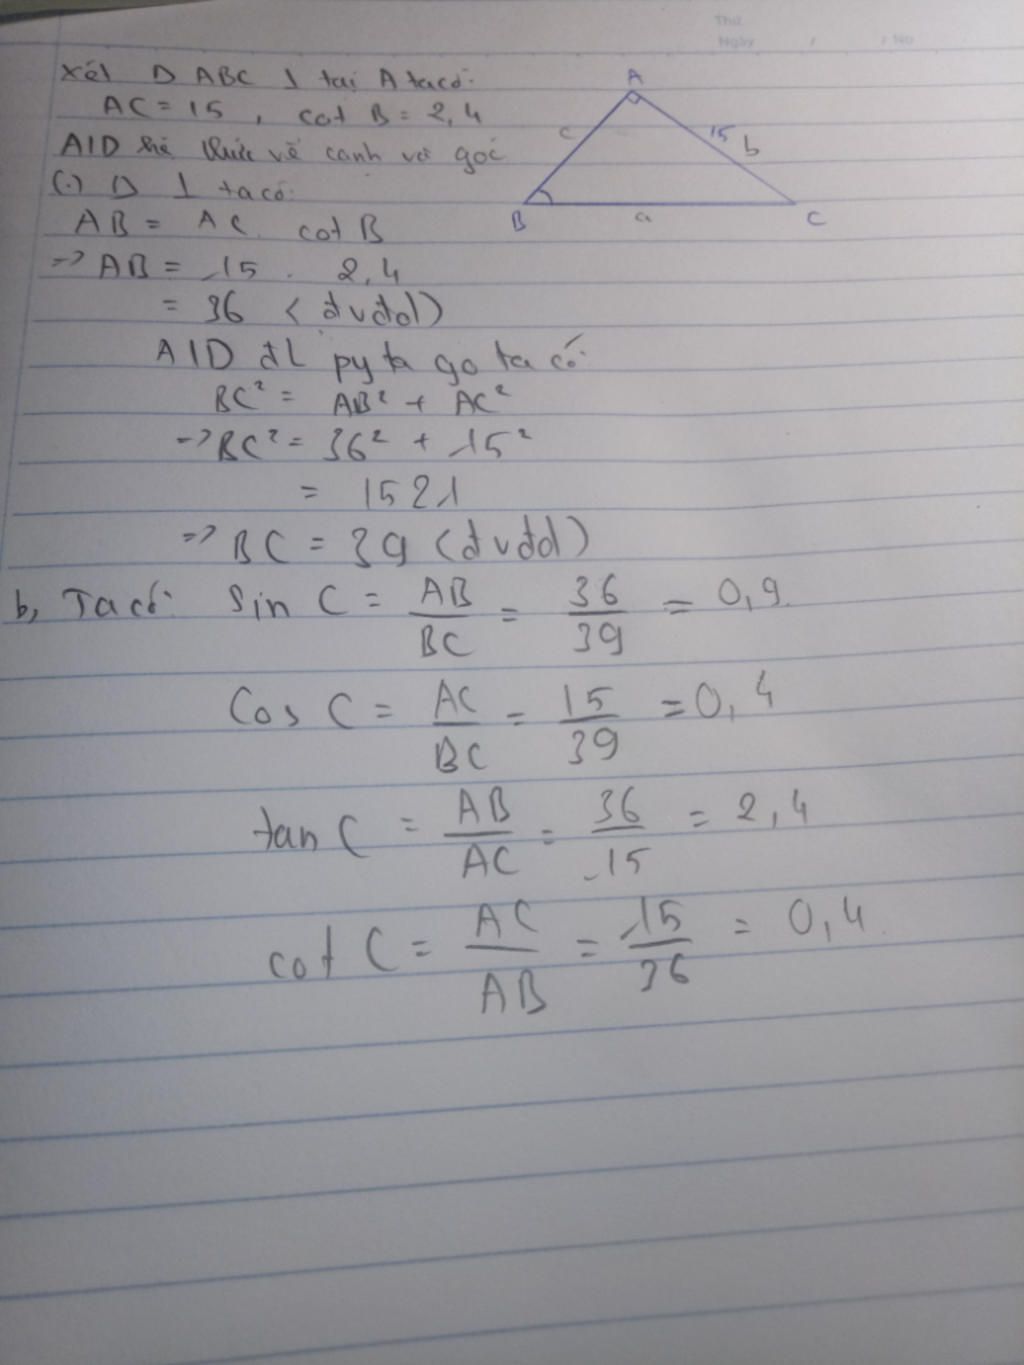 Thứ
Ngày / / No
Xét Δ ABC ⊥ tại A ta có:
AC = 15 , cot B = 2,4
A/D hệ thức về cạnh và góc
(.) Δ ⊥ ta có:
AB = AC . cot B
=> AB = 15 . 2,4
= 36 (đvđd)
A/D đL pytago ta có:
BC² = AB² + AC²
=> BC² = 36² + 15²
= 1521
=> BC = 39 (đvđd)
b, Ta có: Sin C = AB/BC = 36/39 = 0,9.
Cos C = AC/BC = 15/39 = 0,4
tan C = AB/AC = 36/15 = 2,4
cot C = AC/AB = 15/36 = 0,4.
A
c
15 b
B
a
C